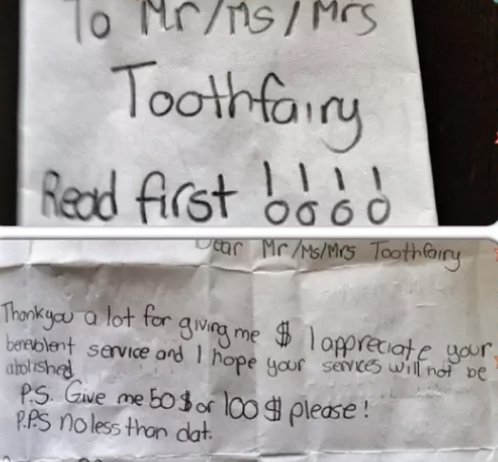 To Mr/Ms/Mrs
Toothfairy
Read first !!!!
Dear Mr/Ms/Mrs Toothfairy
Thankyou a lot for giving me $ I appreciate your
benevolent service and I hope your services will not be
abolished
P.S. Give me 50$ or 100$ please!
P.P.S no less than dat.